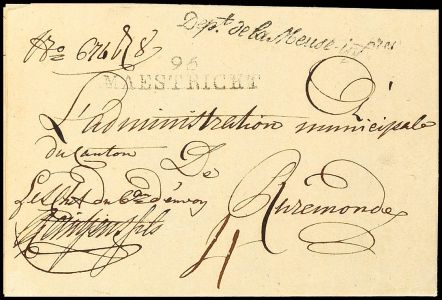 Dept. de la Meuse-infre
No 676 R 8
96
MAESTRICHT
A
L'administration municipale
du Canton De
Ruremonde
4